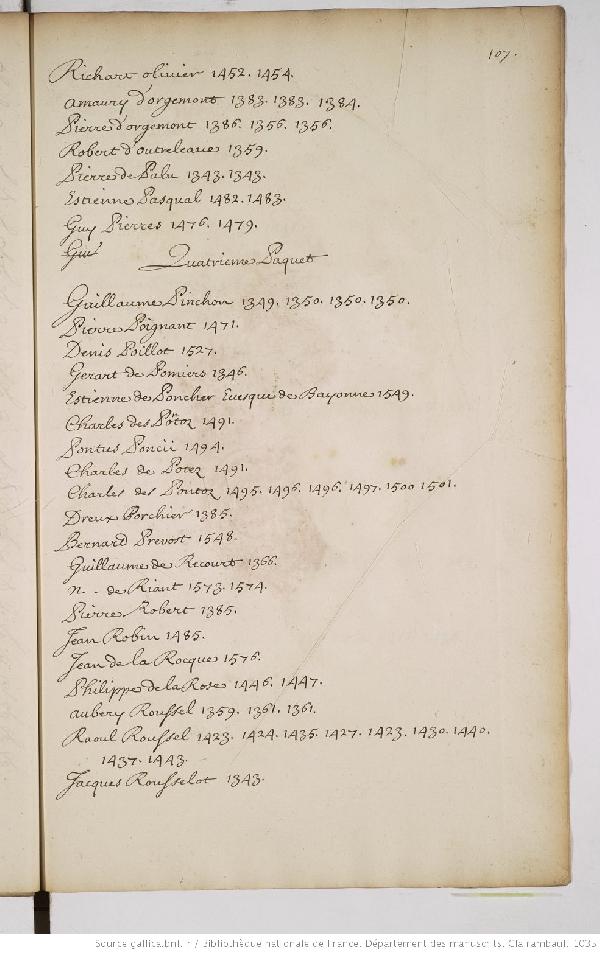 107.
Richart olivier 1452. 1454.
amaury d'orgemont 1383. 1383. 1384.
Pierre d'orgemont 1386. 1356. 1356.
Robert d'outreleaue 1359.
Pierre de Palu 1343. 1343.
Estienne Pasqual 1482. 1483.
Guy Pierres 1476. 1479.
Gui
Quatrieme Paquet
Guillaume Pinchon 1349. 1350. 1350. 1350.
Pierre Poignant 1471.
Denis Poillot 1527.
Gerart de Pomiers 1346.
Estienne de Poncher Euesque de Bayonne 1549.
Charles des Potoz 1491.
Pontus Poncii 1494.
Charles de Potez 1491.
Charles des Pontoz 1495. 1496. 1496. 1497. 1500 1501.
Dreux Porchier 1385.
Bernard Prevost 1548.
Guillaume de Recourt 1366.
n. . de Riant 1573. 1574.
Pierre Robert 1385.
Jean Robin 1485.
Jean de la Rocque 1576.
Philippe de la Rose 1446. 1447.
aubery Roussel 1359. 1361. 1361.
Raoul Roussel 1423. 1424. 1435. 1427. 1423. 1430. 1440.
1437. 1443.
Jacques Rousselot 1343.
Source gallica.bnf.fr / Bibliothèque nationale de France. Département des manuscrits. Clairambault 1035